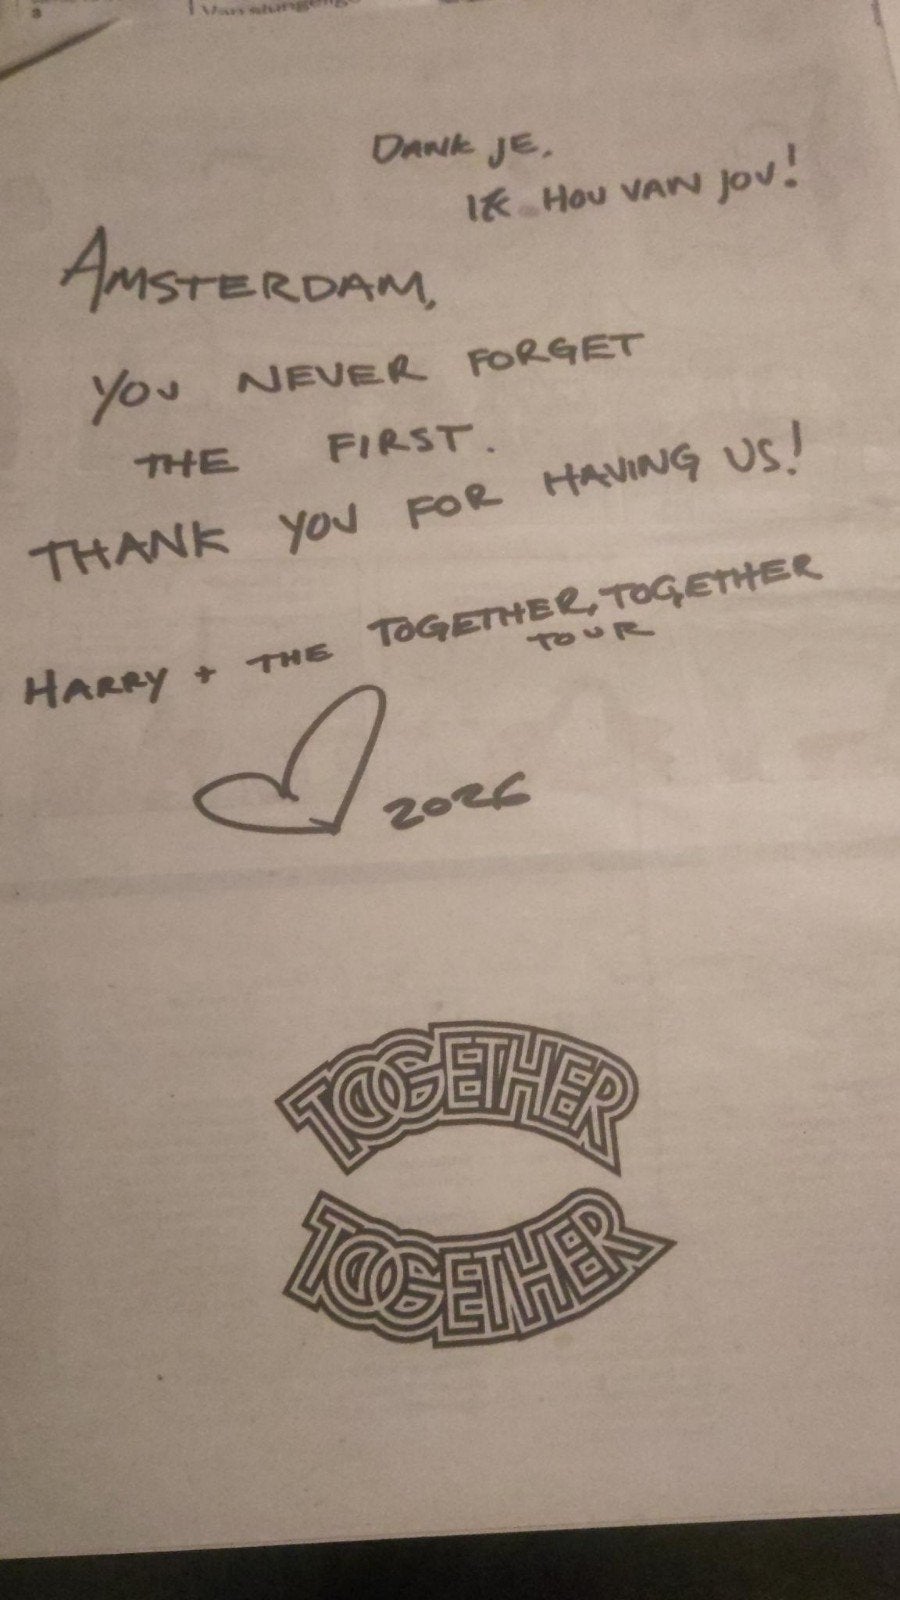 Van slungelig
DANK JE.
IK HOU VAN JOU!
AMSTERDAM,
YOU NEVER FORGET
THE FIRST.
THANK YOU FOR HAVING US!
HARRY + THE TOGETHER, TOGETHER
TOUR
2026
TOGETHER
TOGETHER